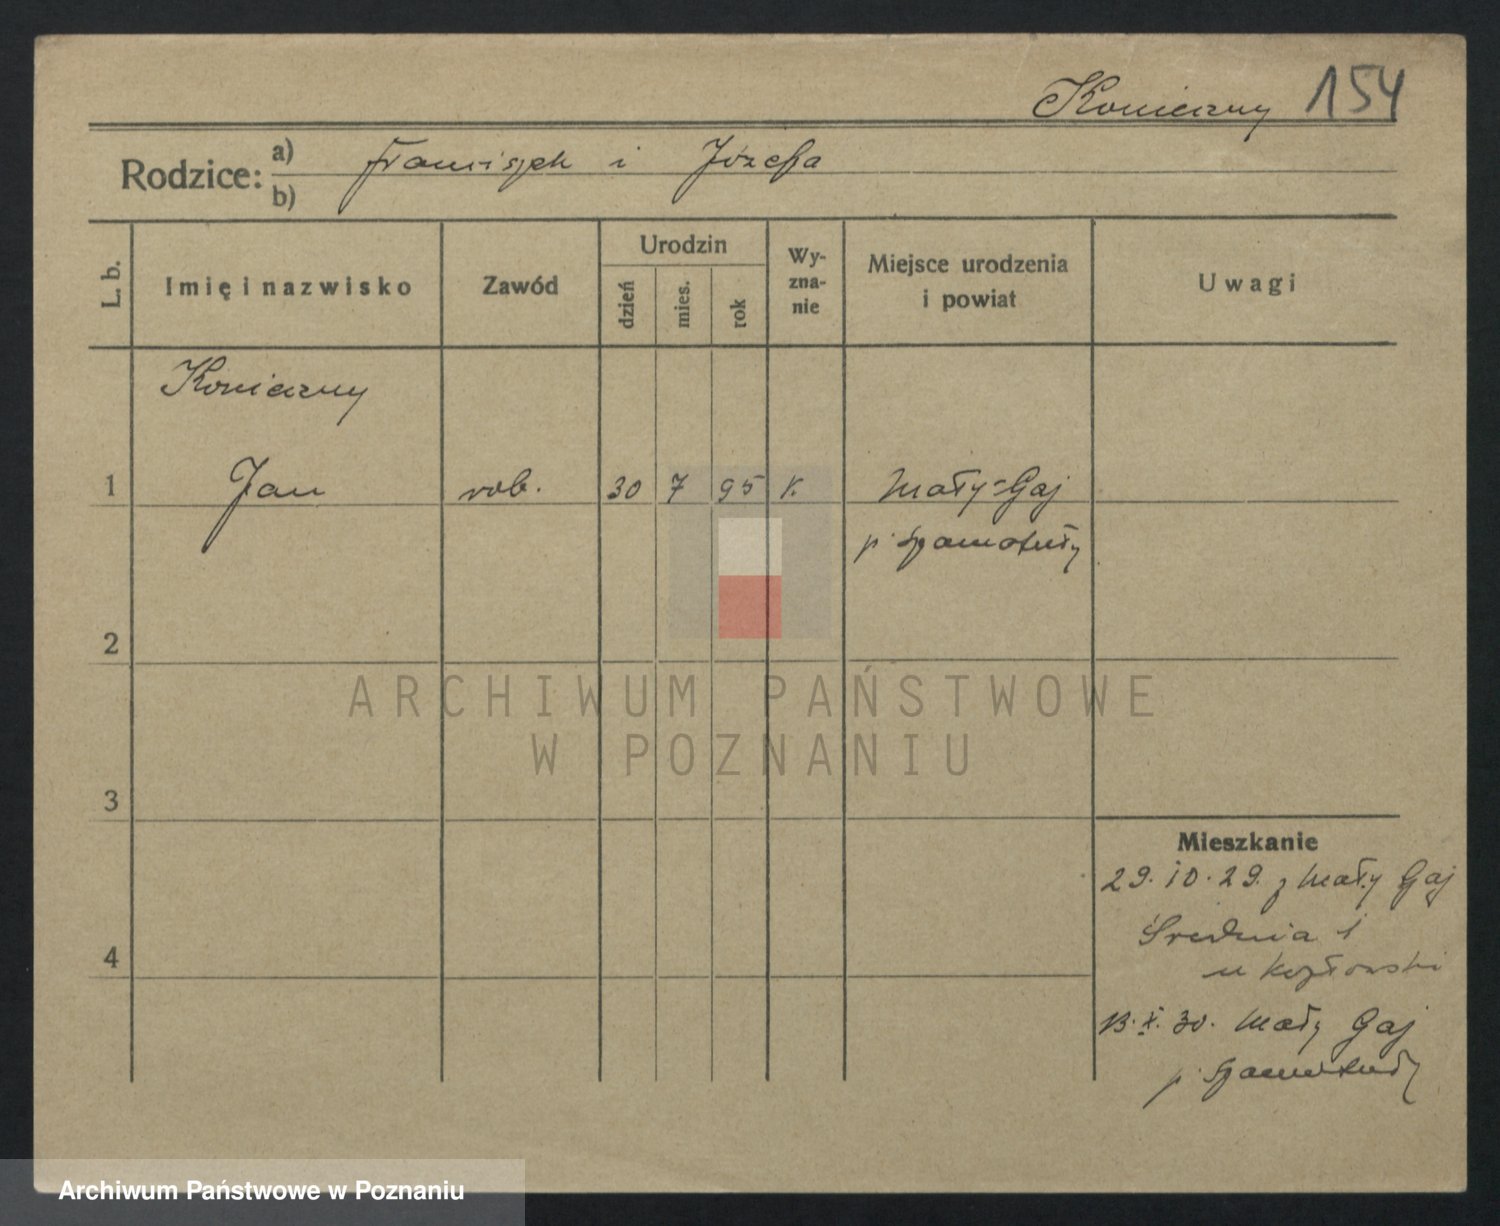 Konieczny 154
Rodzice: a) Franciszek i Józefa
b)
L. b.
Imię i nazwisko
Zawód
Urodzin
dzień
mies.
rok
Wy-
zna-
nie
Miejsce urodzenia
i powiat
Uwagi
Konieczny
1 Jan rob. 30 7 95 k. Mały-Gaj
p. Szamotuły
2
3
4
ARCHIWUM PAŃSTWOWE
W POZNANIU
Mieszkanie
29.10.29. z Mały Gaj
Średnia 1
u Kozłowski
13.X.30. Mały Gaj
p. Szamotuły
Archiwum Państwowe w Poznaniu